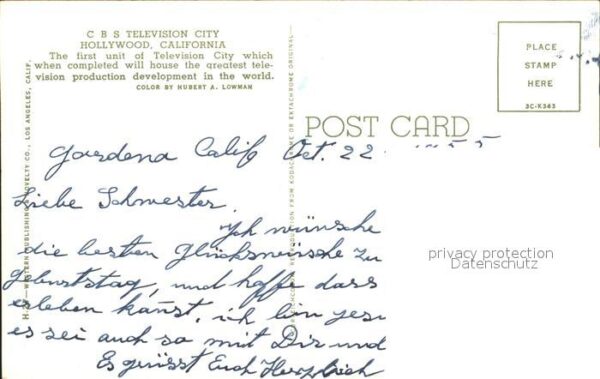 C B S TELEVISION CITY
HOLLYWOOD, CALIFORNIA
The first unit of Television City which
when completed will house the greatest tele-
vision production development in the world.
COLOR BY HUBERT A. LOWMAN
PLACE
STAMP
HERE
3C-K363
POST CARD
WESTERN PUBLISHING & NOVELTY CO., LOS ANGELES, CALIF.
REPRODUCTION FROM KODACHROME OR EKTACHROME ORIGINAL
Gardena Calif Oct. 22 1955
Liebe Schwester,
Ich wünsche
die besten Glückwünsche zu
Geburtstag, und hoffe dass
erleben kanst. ich bin
es sei auch so mit Dir und
Es grüsst Euch Herzlich
privacy protection
Datenschutz